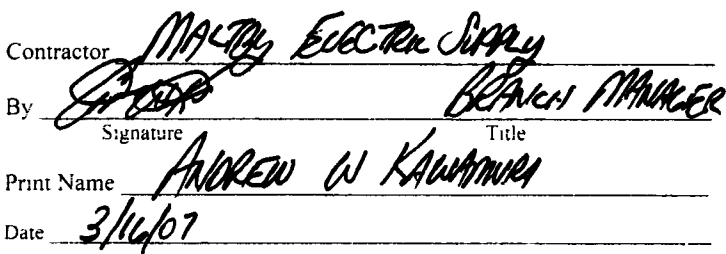 Contractor MALTBY ELECTRIC SUPPLY
By BRANCH MANAGER
Signature Title
Print Name ANDREW W KAWAMURA
Date 3/16/07